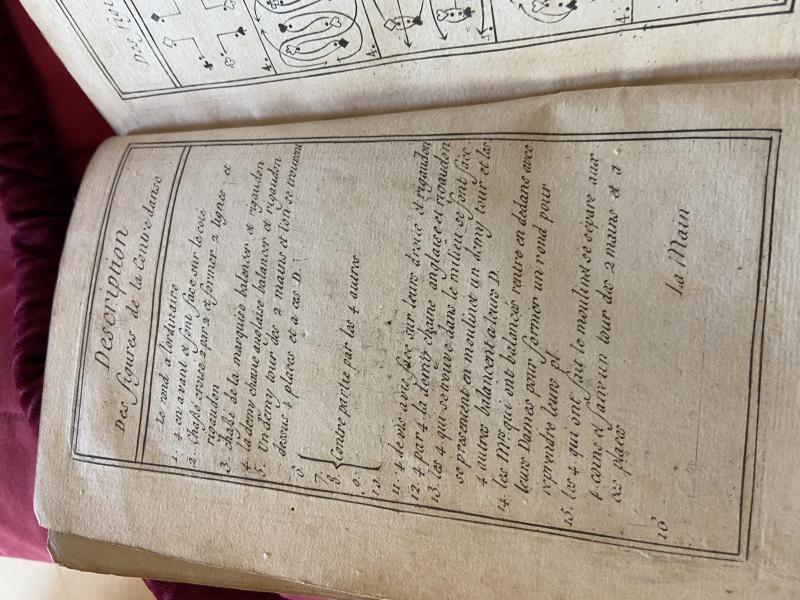 Description
Des figures de la Contre danse
Le rond a lordinaire
1. 4 en avant et font face sur le coté
2. Chassé croisé 2 par 2 et former 2 lignes et
rigaudon
3. chassé de la marquise balancer et rigaudon
4. la demy chaine anglaise balancer et rigaudon
5. Un demy tour des 2 mains et l'on se trouvent
dessus 4 places et a ces D.
6.
7.
8. Contre partie par les 4 autres
9.
10.
11. 4 de vis a vis face sur leurs droite et rigaudon
12. 4 par 4 la demy chaine anglaise et rigaudon
13. les 4 qui se trouve dans le milieu se font face
se presentent en moulinet un demy tour et les
4 autres balancent a leurs D.
14. les Mrs. qui ont balancés rentre en dedans avec
leurs Dames pour former un rond pour
reprendre leurs pl.
15. les 4 qui ont fait le moulinet se separe aux
4 coins et fait un tour des 2 mains et a
ces places
16
La Main